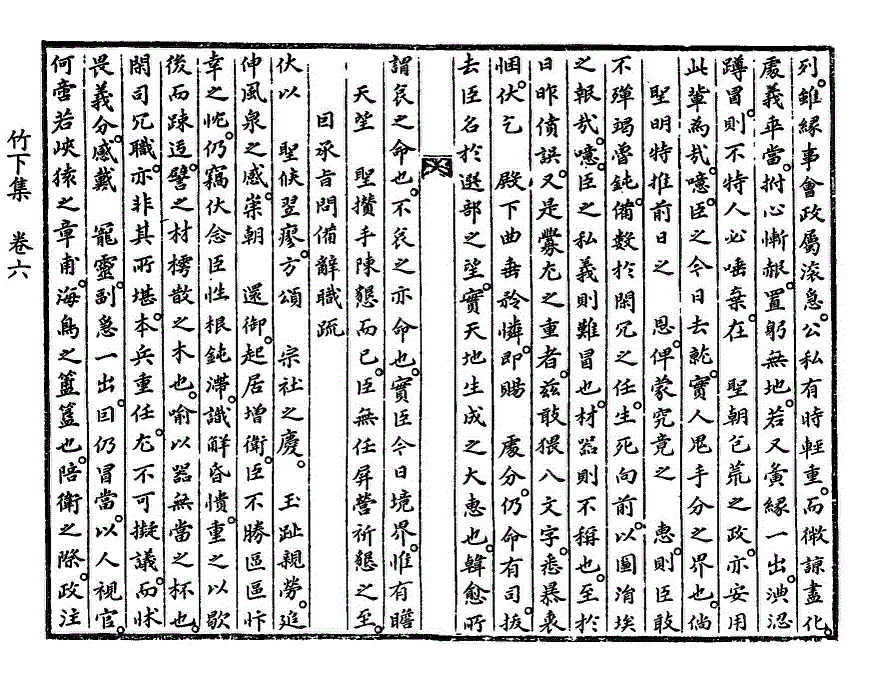 列。雖緣事會政屬滾急。公私有時輕重。而微諒盡化。
處義乖當。拊心慚赧。置躬無地。若又夤緣一出。淟涊
蹲冒。則不特人必唾棄。在 聖朝包荒之政。亦安用
此輩為哉。噫。臣之今日去就。實人鬼手分之界也。倘
聖明特推前日之 恩。俾蒙究竟之 惠。則臣敢
不殫竭魯鈍。備數於閑冗之任。生死向前。以圖涓埃
之報哉。噫。臣之私義則難冒也。材器則不稱也。至於
日昨僨誤。又是釁尤之重者。玆敢猥入文字。悉暴衷
悃。伏乞 殿下曲垂矜憐。卽賜 處分。仍命有司。拔
去臣名於選部之望。實天地生成之大惠也。韓愈所
謂哀之命也。不哀之亦命也。實臣今日境界。惟有瞻
天望 聖。攢手陳懇而已。臣無任屛營祈懇之至。
因承旨問備辭職疏
伏以 聖候翌瘳。方頌 宗社之慶。 玉趾親勞。追
伸風泉之感。崇朝 還御。起居增衛。臣不勝區區忭
幸之忱。仍竊伏念臣性根鈍滯。識解昏憒。重之以歇
後而踈迃。譬之材樗散之木也。喩以器無當之杯也。
閑司冗職。亦非其所堪。本兵重任。尤不可擬議。而怵
畏義分。感戴 寵靈。副急一出。因仍冒當。以人視官。
何啻若峽猿之章甫。海鳥之簠簋也。陪衛之際。政注
竹下集 卷六